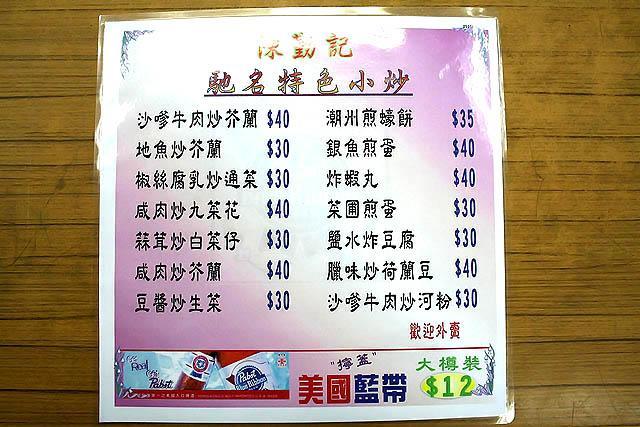 陳勤記
馳名特色小炒
沙嗲牛肉炒芥蘭 $40
地魚炒芥蘭 $30
椒絲腐乳炒通菜 $30
咸肉炒九菜花 $40
蒜茸炒白菜仔 $30
咸肉炒芥蘭 $40
豆醬炒生菜 $30
潮州煎蠔餅 $35
銀魚煎蛋 $40
炸蝦丸 $40
菜圃煎蛋 $30
鹽水炸豆腐 $30
臘味炒荷蘭豆 $40
沙嗲牛肉炒河粉 $30
歡迎外賣
Real
Pabst
Pabst
Blue Ribbon
"擰蓋"
美國藍帶
大樽裝
$12